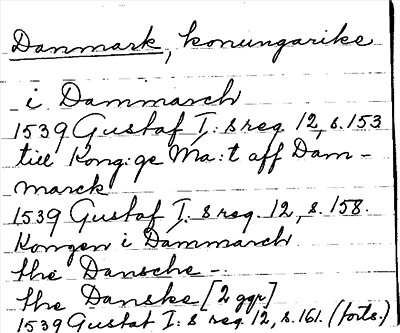 Danmark, konungarike
i Dammarch
1539 Gustaf I:s reg. 12, s. 153
till Kong:ge Ma:t aff Dam-
marck
1539 Gustaf I:s reg. 12, s. 158.
Kongen i Dammarch
the Dansche -
the Danske [2 ggr]
1539 Gustaf I:s reg. 12, s. 161. (forts.)